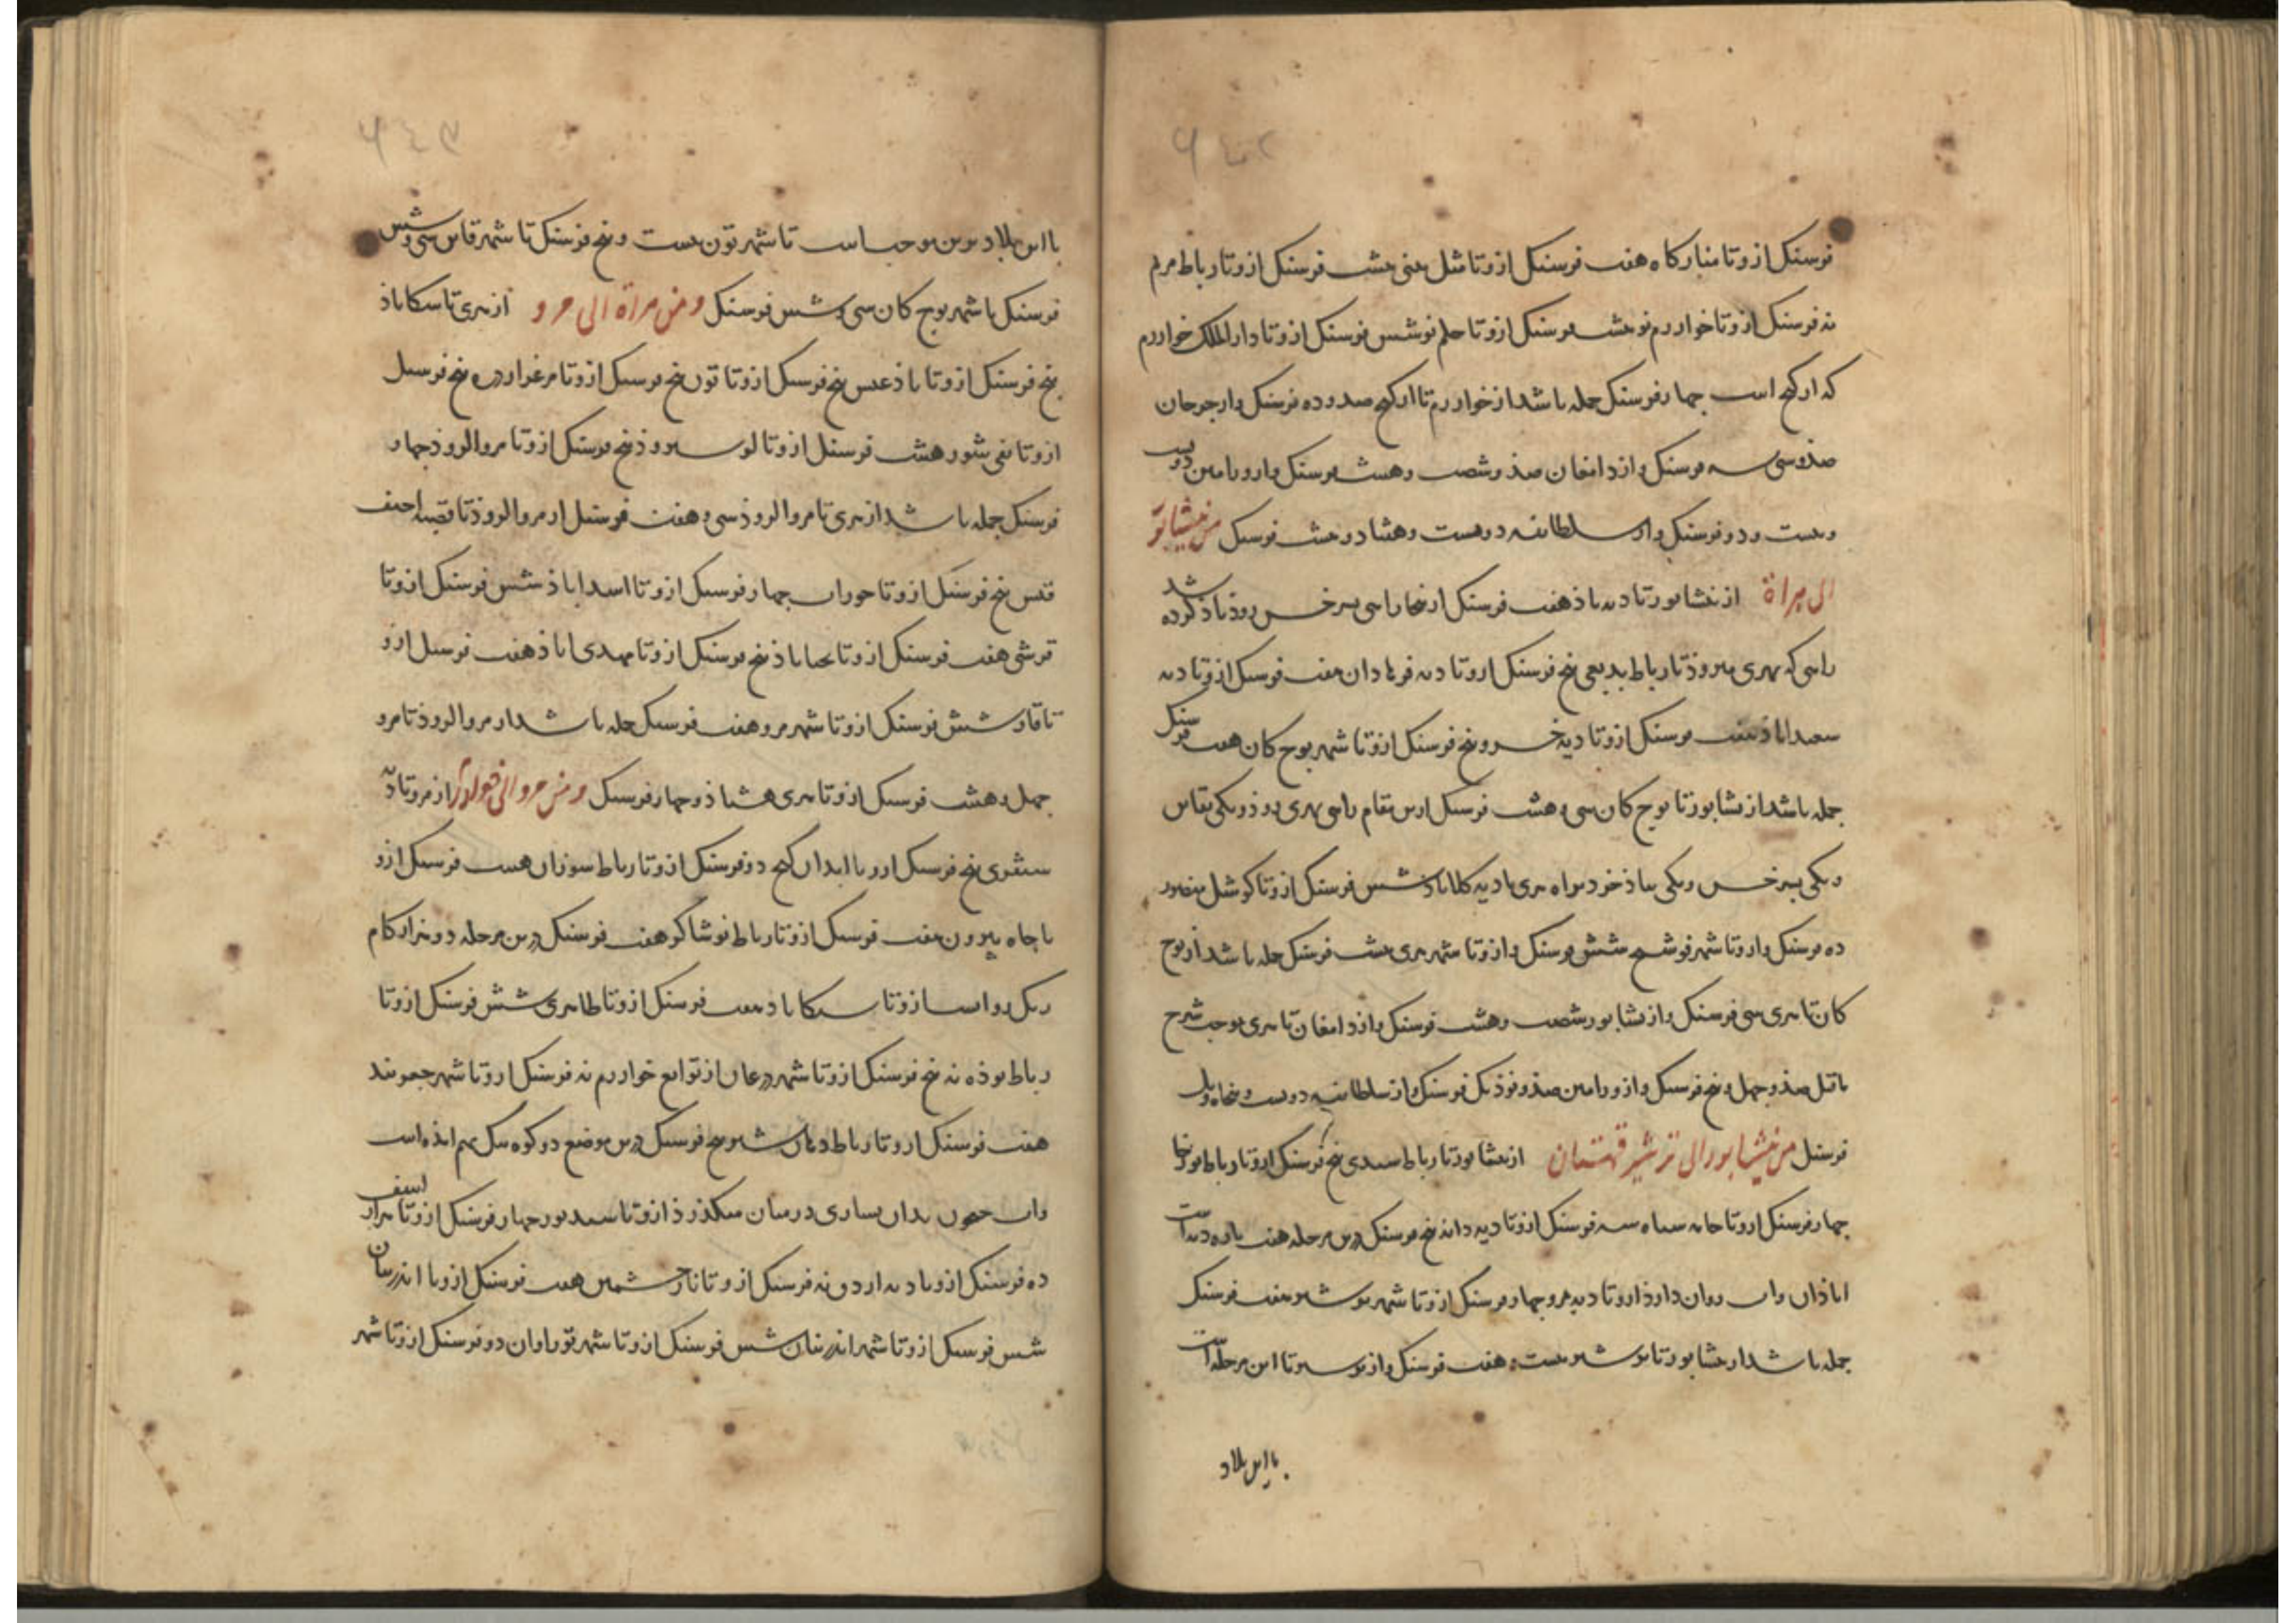 ٦٤٢
فرسنک ازوتا منارکاه هفت فرسنک ازوتا مثل یبنی هشت فرسنک ازوتا رباط مریم
نه فرسنک ازوتا خوارزم نو هشت فرسنک ازوتا حلم نو شش فرسنک ازوتا دارالملک خوارزم
که ارکنج است چهار فرسنک جمله باشد از خوارزم تا ارکنج صد و ده فرسنک واز جرجان
صد و سی سه فرسنک واز دامغان صذ و شصت و هشت فرسنک واز ورامین دویست
وبیست و دو فرسنک واز سلطانیه دویست و هشتاد و هشت فرسنک من نیشابور
الی هراة از نیشابور تا دیه باذ هفت فرسنک از نجا راهی بسرخس روذ یاذ کرده شد
راهی که بهری میروذ تا رباط بدیعی پنج فرسنک ازوتا دیه فرهادان هفت فرسنک ازوتا دیه
سعیداباذ هفت فرسنک ازوتا دیه خسرو پنج فرسنک ازوتا شهر بوج کان هفت فرسنک
جمله باشد از نشابور تا بوج کان سی و هشت فرسنک ازین مقام راهی بهری روذ ویکی بقاین
ویکی بسرخس ویکی بباذ خرد براه هری تا دیه کلاباذ شش فرسنک ازوتا کوشک منصور
ده فرسنک وازوتا شهر فوشنج شش فرسنک وازوتا شهر هری هشت فرسنک جمله باشد از بوج
کان تا هری سی فرسنک واز نشابور شصت و هشت فرسنک واز دامغان تا هری بوجب شرح
ماقبل صذ و چهل و پنج فرسنک واز ورامین صذ و نوذ یک فرسنک واز سلطانیه دویست و پنجاه ویک
فرسنک من نیشابور الی ترشیز قهستان از نیشابور تا رباط سعیدی پنج فرسنک ازوتا رباط نورخا
چهار فرسنک ازوتا خانه سیاه سه فرسنک ازوتا دیه دانه پنج فرسنک درین مرحله هفت پاره دیه است
اباذان واب روان دارذ ازوتا دیه مرو چهار فرسنک ازوتا شهر بوشیز هفت فرسنک
جمله باشد از نشابور تا بوشیز بیست و هفت فرسنک واز بوشیز تا این مرحله است
با این بلاد
٦٤٣
با این بلاد برین موجب است تا شهر تون بیست و پنج فرسنک تا شهر قاین سی و شش
فرسنک تا شهر بوج کان سی و شش فرسنک ومن هراة الی مرو از هری تا سکاباذ
پنج فرسنک ازوتا باذغیس پنج فرسنک ازوتا تون پنج فرسنک ازوتا مرغزار دره پنج فرسنک
ازوتا بغی شور هشت فرسنک ازوتا لوسروذ پنج فرسنک ازوتا مروالروذ چهار
فرسنک جمله باشد از هری تا مروالروذ سی و هفت فرسنک از مروالروذ تا قصبه احنف
قیس پنج فرسنک ازوتا حوراب چهار فرسنک ازوتا اسداباذ شش فرسنک ازوتا
قرشی هفت فرسنک ازوتا یحیاباذ پنج فرسنک ازوتا مهدی اباذ هفت فرسنک ازو
تا فاز شش فرسنک ازوتا شهر مرو هفت فرسنک جمله باشد از مروالروذ تا مرو
چهل و هشت فرسنک ازوتا هری هشتاذ و چهار فرسنک ومن مرو الی خوارزم از مرو تا دیه
سقری پنج فرسنک ازوتا ابدان کنج دو فرسنک ازوتا رباط سوران هشت فرسنک ازو
تا چاه بیرون هفت فرسنک ازوتا رباط نوشاکر هفت فرسنک درین مرحله دو هزار کام
ریک روانست ازوتا سکاباد هفت فرسنک ازوتا طاهری شش فرسنک ازوتا
رباط بوذه نه پنج فرسنک ازوتا شهر درغان از توابع خوارزم نه فرسنک ازوتا شهر جعربند
هفت فرسنک ازوتا رباط دهان شیر پنج فرسنک درین موضع دو کوه تنک بهم امذه است
واب جیحون بدان بسیاری در میان میکذرذ ازوتا سدور چهار فرسنک ازوتا هزاراسف
ده فرسنک ازوتا دیه ازدق نه فرسنک ازوتا نارخشمین هفت فرسنک ازوتا اندرستان
شش فرسنک ازوتا شهر اندرستان شش فرسنک ازوتا شهر نوراوان دو فرسنک ازوتا شهر